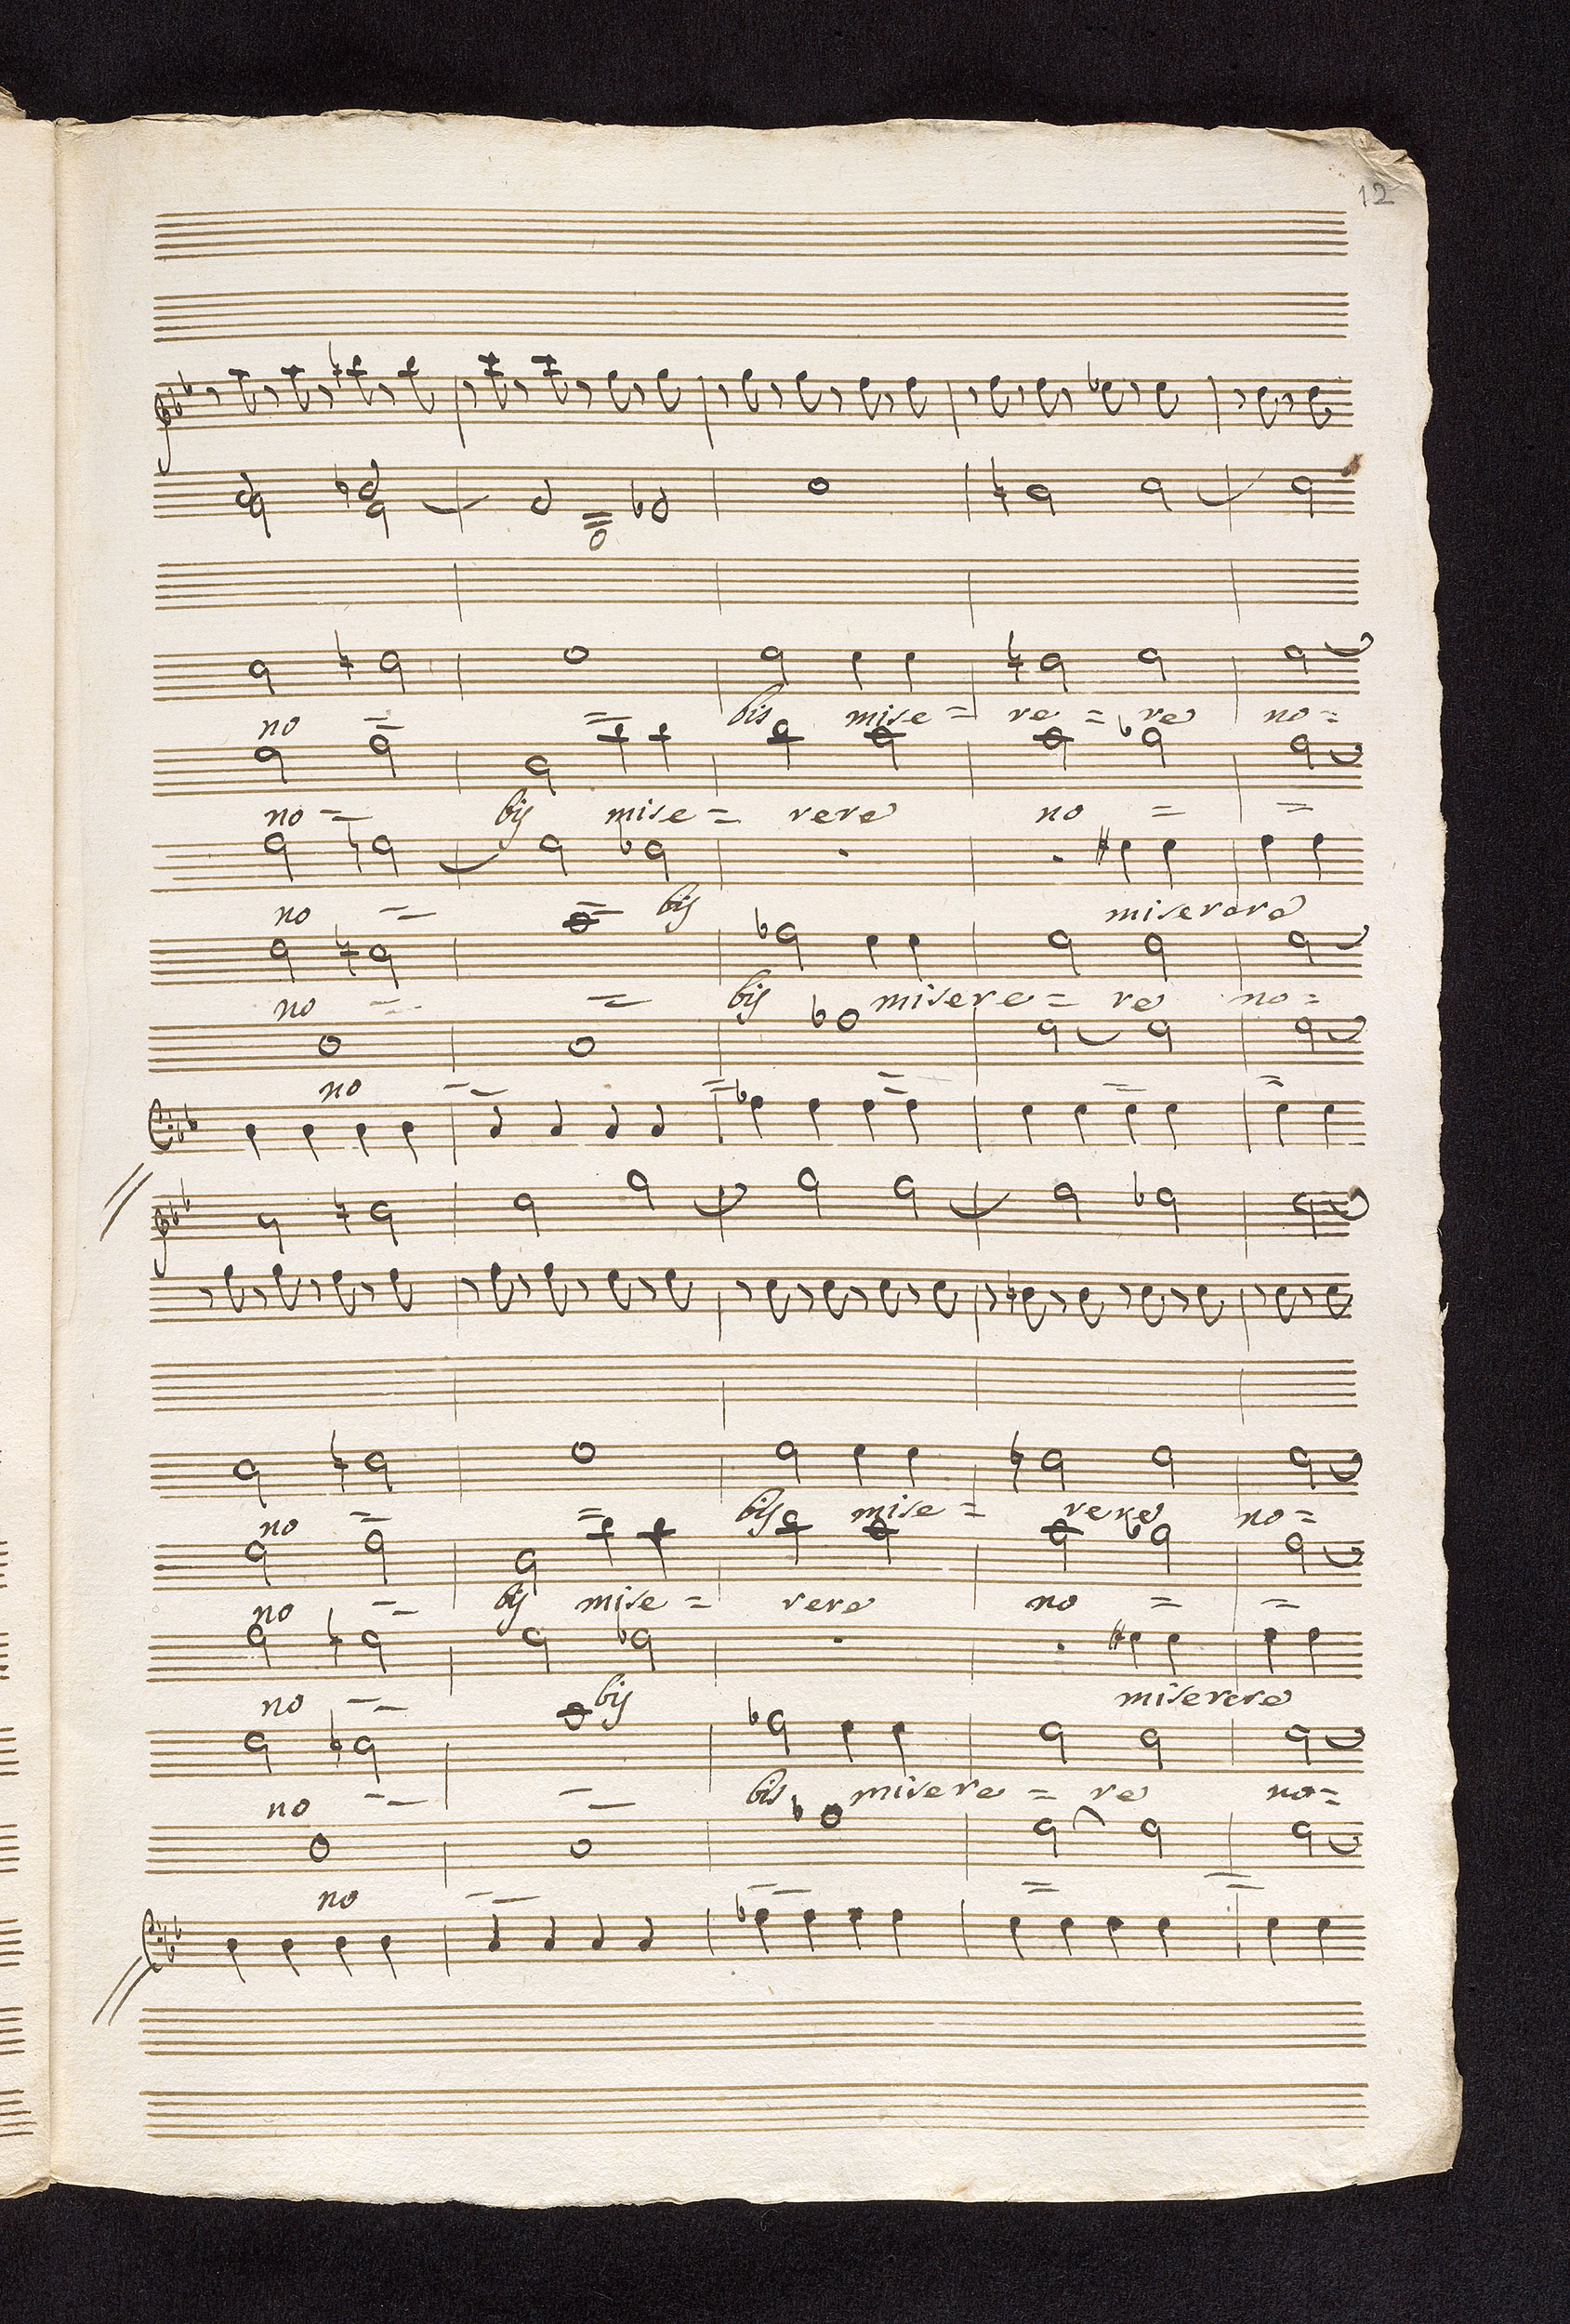 12
no = = bis mise = re = re no =
no = bis mise = rere no = =
no = bis miserere
no = = bis misere = re no =
no = = = = =
no = = bis mise = rere no =
no = bis mise = rere no = =
no = bis miserere
no = = bis misere = re no =
no = = = =